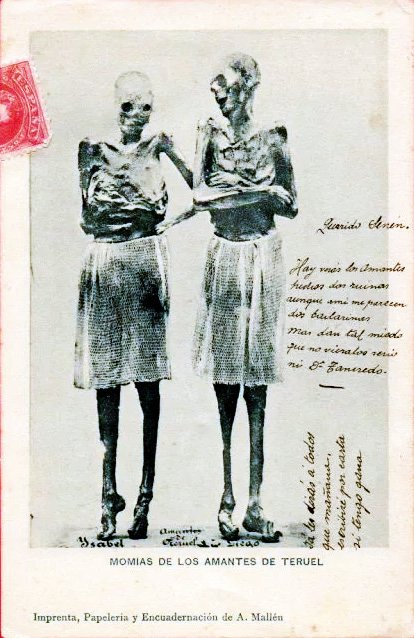 ESPAÑA
Querido Senén,
Hay vais los Amantes
hechos dos ruinas
aunque a mi me parecen
dos bailarinas
Mas dan tal miedo
que no vierais seris
ni Dn Tancredo.
Ya les dirás a todos
que mañana,
escribire por carta
si tengo gana
Ysabel
Amantes
de
Teruel
Diego
MOMIAS DE LOS AMANTES DE TERUEL
Imprenta, Papelería y Encuadernación de A. Mallén